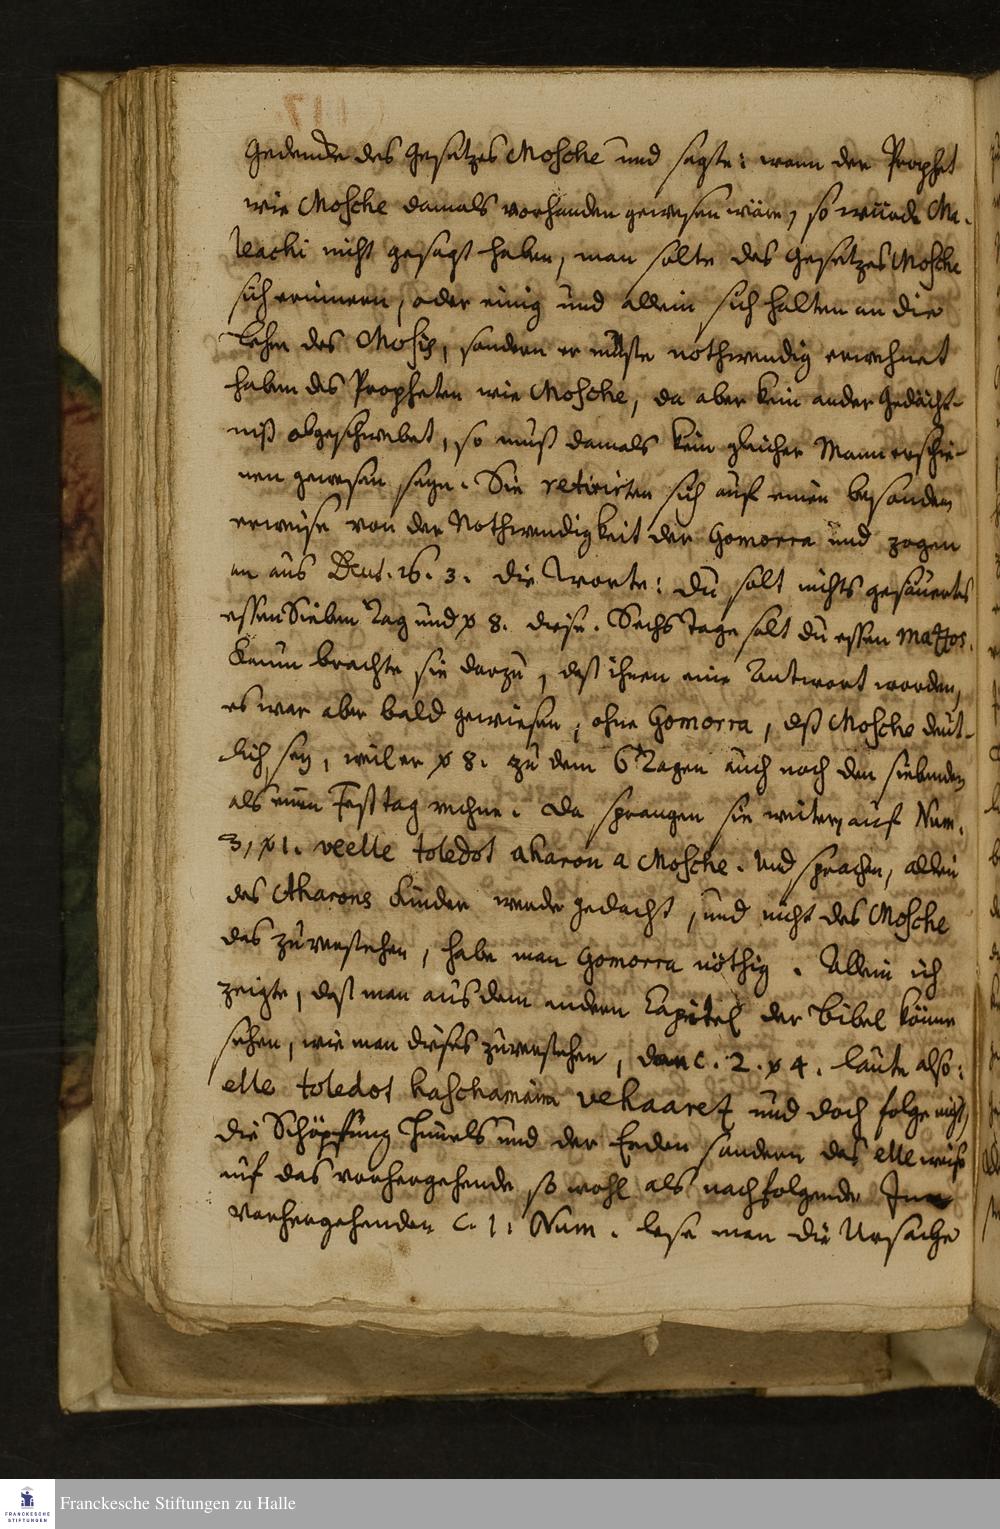 Gedencke des Gesetzes Mosche und sagte: wann der Prophet
wie Mosche damals vorhanden gewesen wäre, so würde Ma-
leachi nicht gesagt haben, man solte des Gesetzes Mosche
sich erinnern, oder einig und allein sich halten an die
Lehre des Mosis, sondern er müste nothwendig erwehnet
haben des Propheten wie Mosche, da aber kein ander Gedächt-
niß obgeschwebet, so muß damals kein gleicher Mann erschie-
nen gewesen seyn. Sie retirirten sich auf einen besondern
erweise von der Nothwendigkeit der Gomorra und zogen
an aus Deut. 16. 3. die Worte: du solt nichts gesäuertes
essen Sieben Tag und v 8. diese. Sechs Tage solt du essen mattos.
Kaum brachte sie darzu, daß ihnen eine Antwort worden,
es war aber bald gewiesen, ohne Gomorra, daß Mosche deut-
lich sey, weil er v 8. zu dem 6 Tagen auch noch den siebenden
als einen Fest tag rechne. Da sprangen sie weiter, auf Num.
3, v 1. veelle toledot aharon a Mosche. Und sprachen, allein
des Aharons Kinder werde gedacht, und nicht des Mosche
das zuverstehen, habe man Gomorra nöthig. Allein ich
zeigte, daß man aus dem andern Capitel der Bibel könne
sehen, wie man dieses zuverstehen, dan c. 2. v 4. laute also:
elle toledot haschamaim vehaaretz und doch folge nicht,
die Schöpffung Himels und der Erden sondern das elle weise
auf das vorhergehende so wohl als nachfolgende Im
vorhergehenden c. 1. Num. lese man die Ursache
Franckesche Stiftungen zu Halle
FRANCKESCHE
STIFTUNGEN